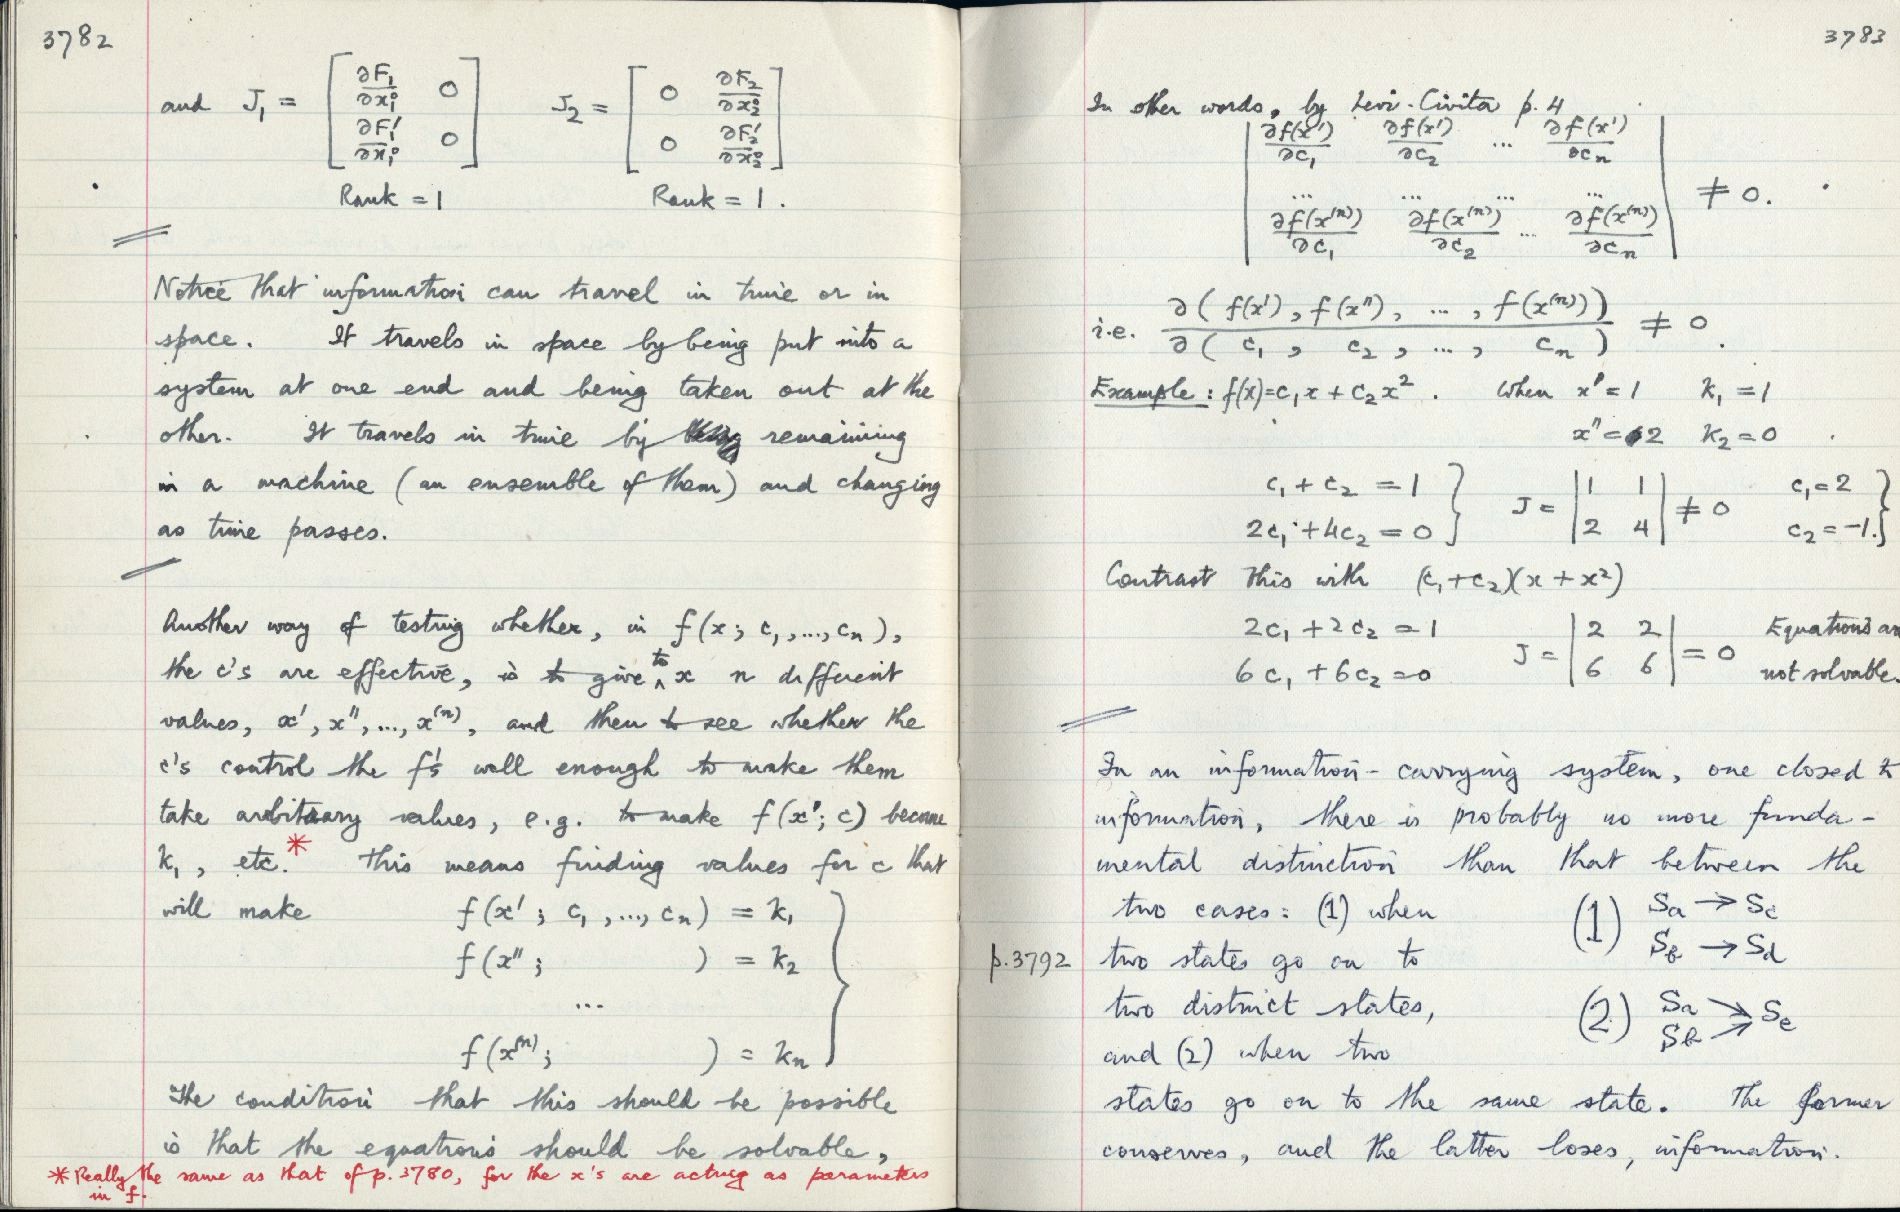 3782
and J₁ = [ ∂F₁/∂x₁° 0 ; ∂F₁'/∂x₁° 0 ] J₂ = [ 0 ∂F₂/∂x₂° ; 0 ∂F₂'/∂x₂° ]
Rank = 1 Rank = 1.
Notice that information can travel in time or in
space. It travels in space by being put into a
system at one end and being taken out at the
other. It travels in time by remaining
in a machine (an ensemble of them) and changing
as time passes.
Another way of testing whether, in f(x; c₁, ..., cₙ),
the c's are effective, is to give to x n different
values, x', x'', ..., x⁽ⁿ⁾, and then to see whether the
c's control the f's well enough to make them
take arbitrary values, e.g. to make f(x'; c) become
k₁, etc.* This means finding values for c that
will make f(x'; c₁, ..., cₙ) = k₁
f(x''; ) = k₂
...
f(x⁽ⁿ⁾; ) = kₙ
The condition that this should be possible
is that the equations should be solvable,
* Really the same as that of p. 3780, for the x's are acting as parameters
in f.
3783
In other words, by Levi-Civita p. 4
| ∂f(x')/∂c₁ ∂f(x')/∂c₂ ... ∂f(x')/∂cₙ |
| ... ... ... ... | ≠ 0.
| ∂f(x⁽ⁿ⁾)/∂c₁ ∂f(x⁽ⁿ⁾)/∂c₂ ... ∂f(x⁽ⁿ⁾)/∂cₙ |
i.e. ∂( f(x'), f(x''), ..., f(x⁽ⁿ⁾)) / ∂( c₁, c₂, ..., cₙ ) ≠ 0.
Example: f(x)=c₁x + c₂x². When x' = 1 k₁ = 1
x'' = 2 k₂ = 0
c₁ + c₂ = 1 } J = | 1 1 | ≠ 0 c₁ = 2 }
2c₁ + 4c₂ = 0 } | 2 4 | c₂ = -1. }
Contrast this with (c₁+c₂)(x + x²)
2c₁ + 2c₂ = 1 J = | 2 2 | = 0 Equations are
6c₁ + 6c₂ = 0 | 6 6 | not solvable.
In an information-carrying system, one closed to
information, there is probably no more funda-
mental distinction than that between the
two cases: (1) when (1) Sa → Sc
p.3792 two states go on to Sb → Sd
two distinct states, (2) Sa ↘ Se
and (2) when two Sb ↗
states go on to the same state. The former
conserves, and the latter loses, information.